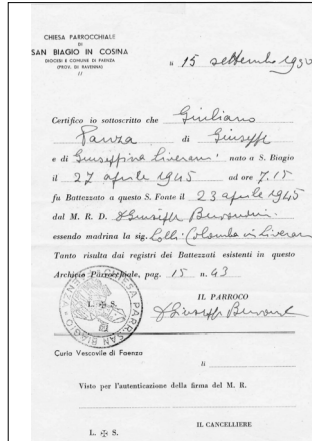 CHIESA PARROCCHIALE
DI
SAN BIAGIO IN COSINA
DIOCESI E COMUNE DI FAENZA
(PROV. DI RAVENNA)
//
li 15 settembre 1950
Certifico io sottoscritto che Giuliano
Panza di Giuseppe
e di Giuseppina Liverani nato a S. Biagio
il 27 aprile 1945 ad ore 7.15
fu Battezzato a questo S. Fonte il 23 aprile 1945
dal M. R. D. Giuseppe
essendo madrina la sig. Lolli Colomba in Liverani
Tanto risulta dai registri dei Battezzati esistenti in questo
Archivio Parrocchiale, pag. 15 n. 43
L. ✠ S.
IL PARROCO
D Giuseppe
Curia Vescovile di Faenza
li
Visto per l'autenticazione della firma del M. R.
IL CANCELLIERE
L. ✠ S.